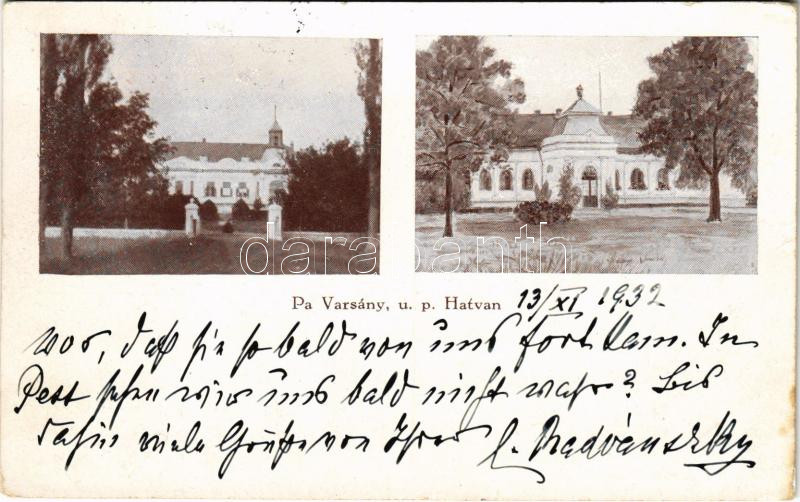 darabanth
Pa Varsány, u. p. Hatvan 13/XI 1932
war, daß sie so bald von uns fort kam. In
Pest sehen wir uns bald nicht wahr? Bis
dahin viele Grüße von Ihrer C. Radvánszky